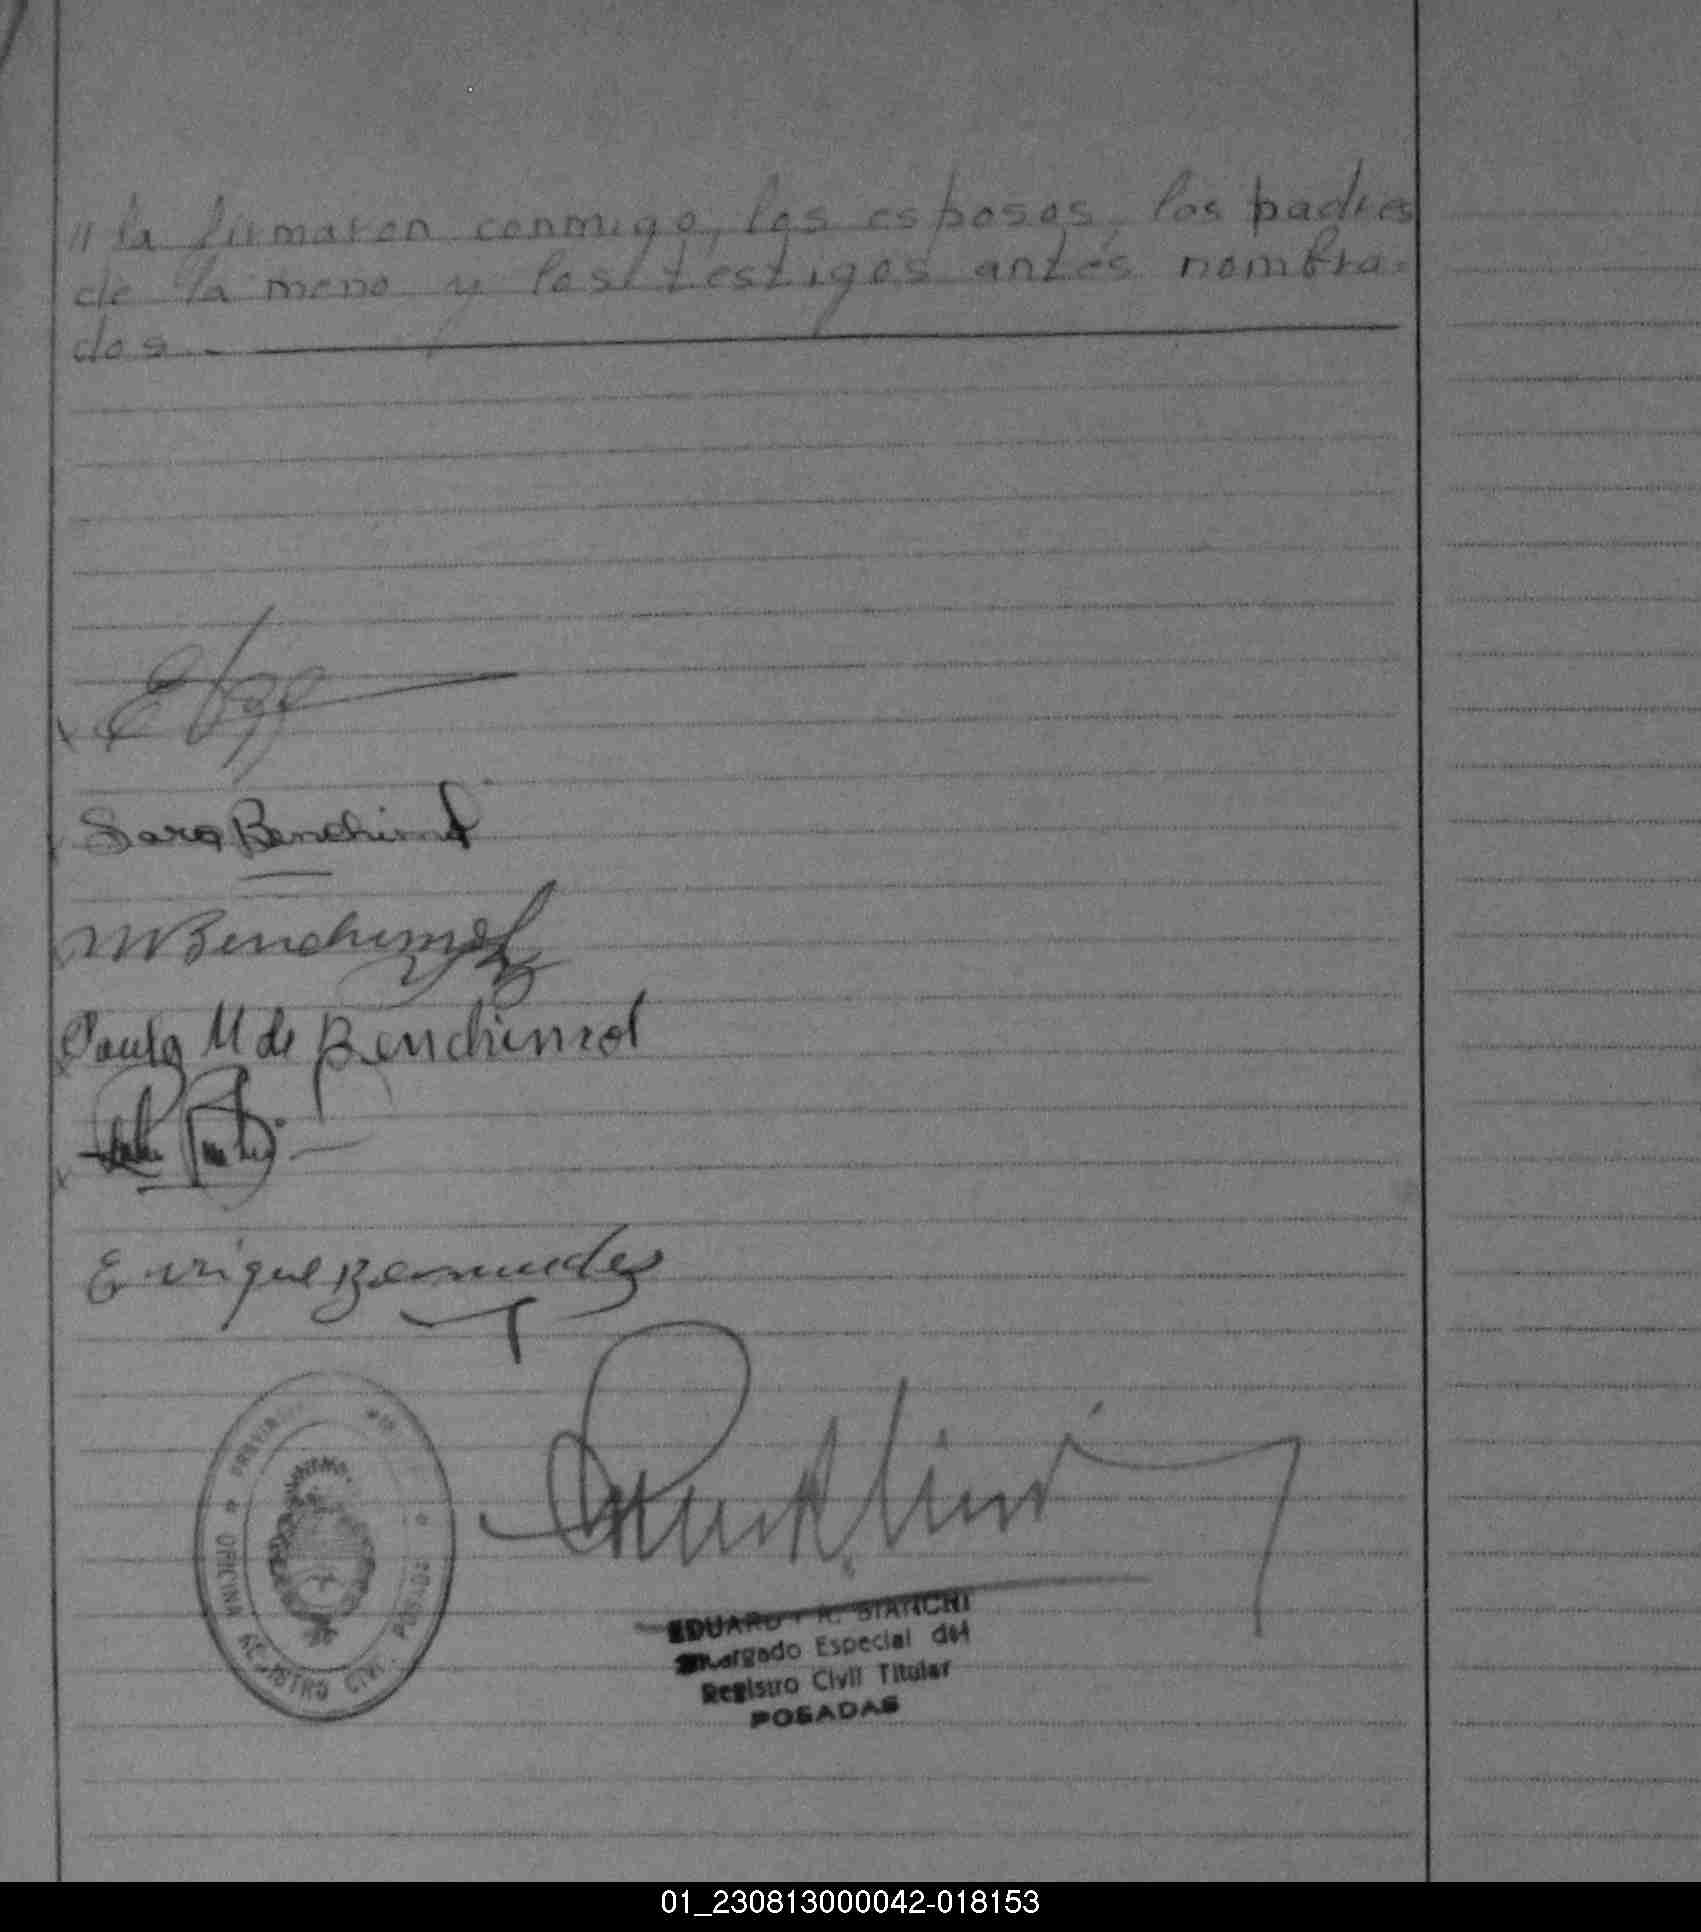 " la firmaron conmigo, los esposos, los padres
de la meno y los testigos antes nombra-
dos.
Sara Benchimol
M Benchimol
Paula M de Benchimol
Enrique Bermudez
OFICINA REGISTRO CIVIL POSADAS
EDUARDO R. BIANCHI
Encargado Especial del
Registro Civil Titular
POSADAS
01_230813000042-018153